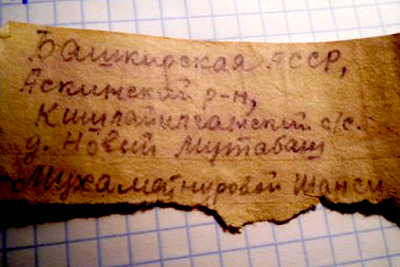 Башкирская АССР,
Аскинской р-н,
Кшлайилгамский с/с.
д. Новый Мутабаш
Мухаметнуровой Шамси